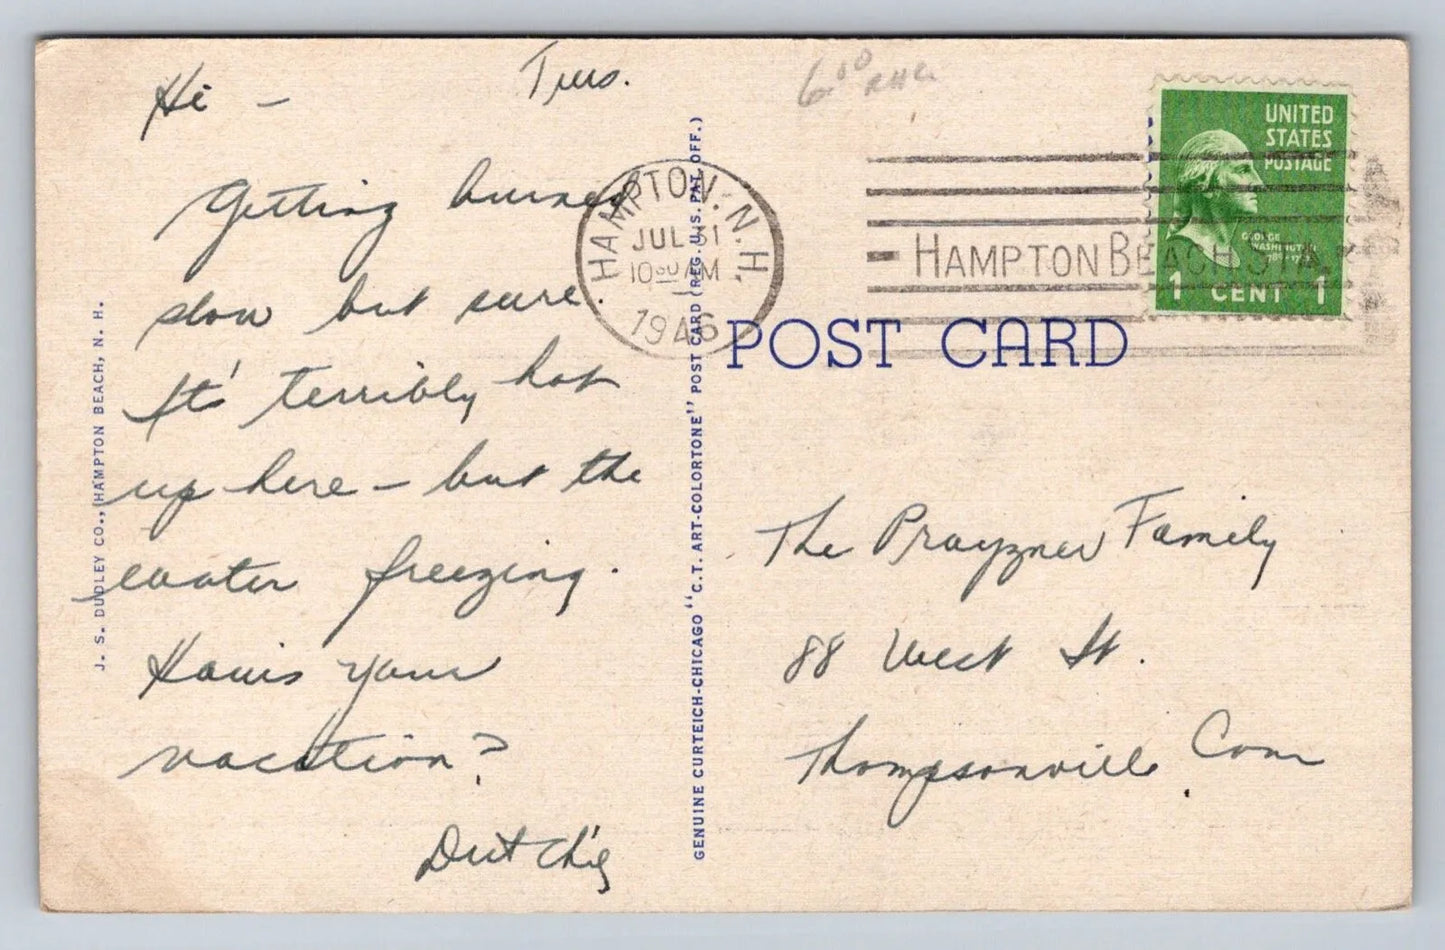 Tues.
Hi -
Getting burned
slow but sure.
It's terribly hot
up here - but the
water freezing.
How's your
vacation?
Dutchie
J. S. DUDLEY CO., HAMPTON BEACH, N. H.
GENUINE CURTEICH-CHICAGO "C.T. ART-COLORTONE" POST CARD (REG. U.S. PAT. OFF.)
6.00
HAMPTON, N.H.
JUL 31
10 30 AM
1946
HAMPTON BEACH STA.
UNITED
STATES
POSTAGE
GEORGE
WASHINGTON
1 CENT 1
POST CARD
The Prayzner Family
88 West St.
Thompsonville Conn